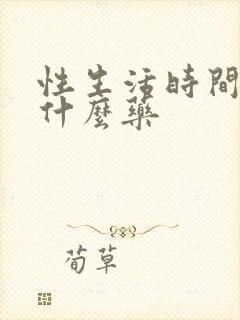 性生活時間
什麼藥
荀草